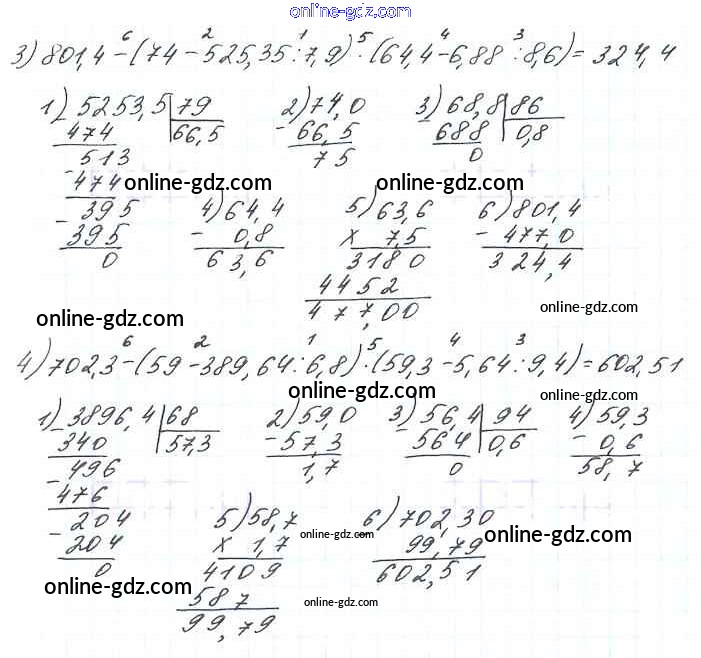 online-gdz.com
3) 801,4 - (74 - 525,35 : 7,9) · (64,4 - 6,88 : 8,6) = 324,4
6 2 1 5 4 3
1) 5253,5 | 79
474 | 66,5
513
- 474
- 395
395
0
2) 74,0
- 66,5
7 5
3) 68,8 | 86
688 | 0,8
0
online-gdz.com
online-gdz.com
4) 64,4
- 0,8
63,6
5) 63,6
x 7,5
3180
4452
477,00
6) 801,4
- 477,0
324,4
online-gdz.com
online-gdz.com
6 2 1 5 4 3
4) 702,3 - (59 - 389,64 : 6,8) · (59,3 - 5,64 : 9,4) = 602,51
online-gdz.com
online-gdz.com
1) 3896,4 | 68
340 | 57,3
- 496
476
- 204
204
0
2) 59,0
- 57,3
1,7
3) 56,4 | 94
564 | 0,6
0
4) 59,3
- 0,6
58,7
5) 58,7
x 1,7
4109
587
99,79
6) 702,30
99,79
602,51
online-gdz.com
online-gdz.com
online-gdz.com
online-gdz.com